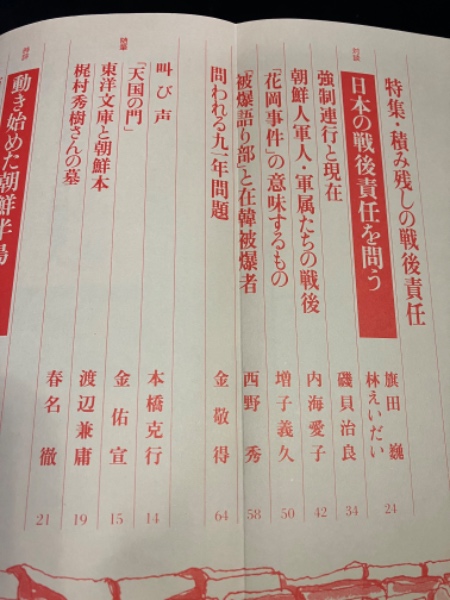 特集・積み残しの戦後責任
対談
日本の戦後責任を問う 旗田 巍 林えいだい 24
強制連行と現在 磯貝治良 34
朝鮮人軍人・軍属たちの戦後 内海愛子 42
「花岡事件」の意味するもの 増子義久 50
「被爆語り部」と在韓被爆者 西野 秀 58
問われる九一年問題 金 敬 得 64
叫び声 本橋克行 14
映画
「天国の門」 金 佑 宣 15
東洋文庫と朝鮮本 渡辺兼庸 19
梶村秀樹さんの墓 春名 徹 21
動き始めた朝鮮半島